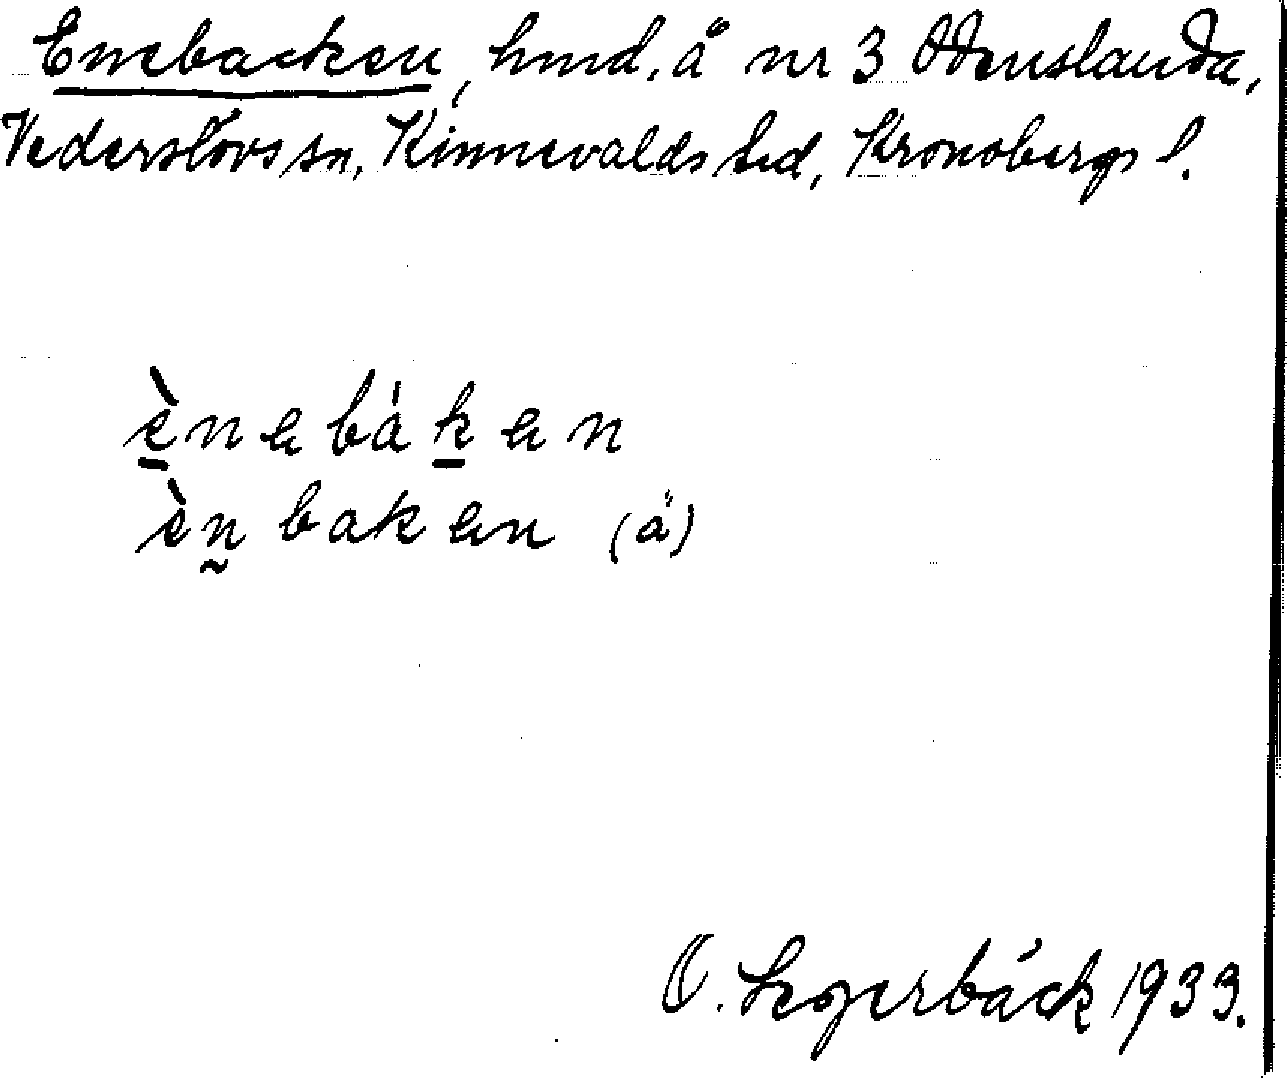 Enebacken, hmd. å nr 3 Odenslanda,
Vederslövs sn, Kinnevalds hd, Kronobergs l.
ènebàken
èn baken (å)
O. Segerbäck 1933.